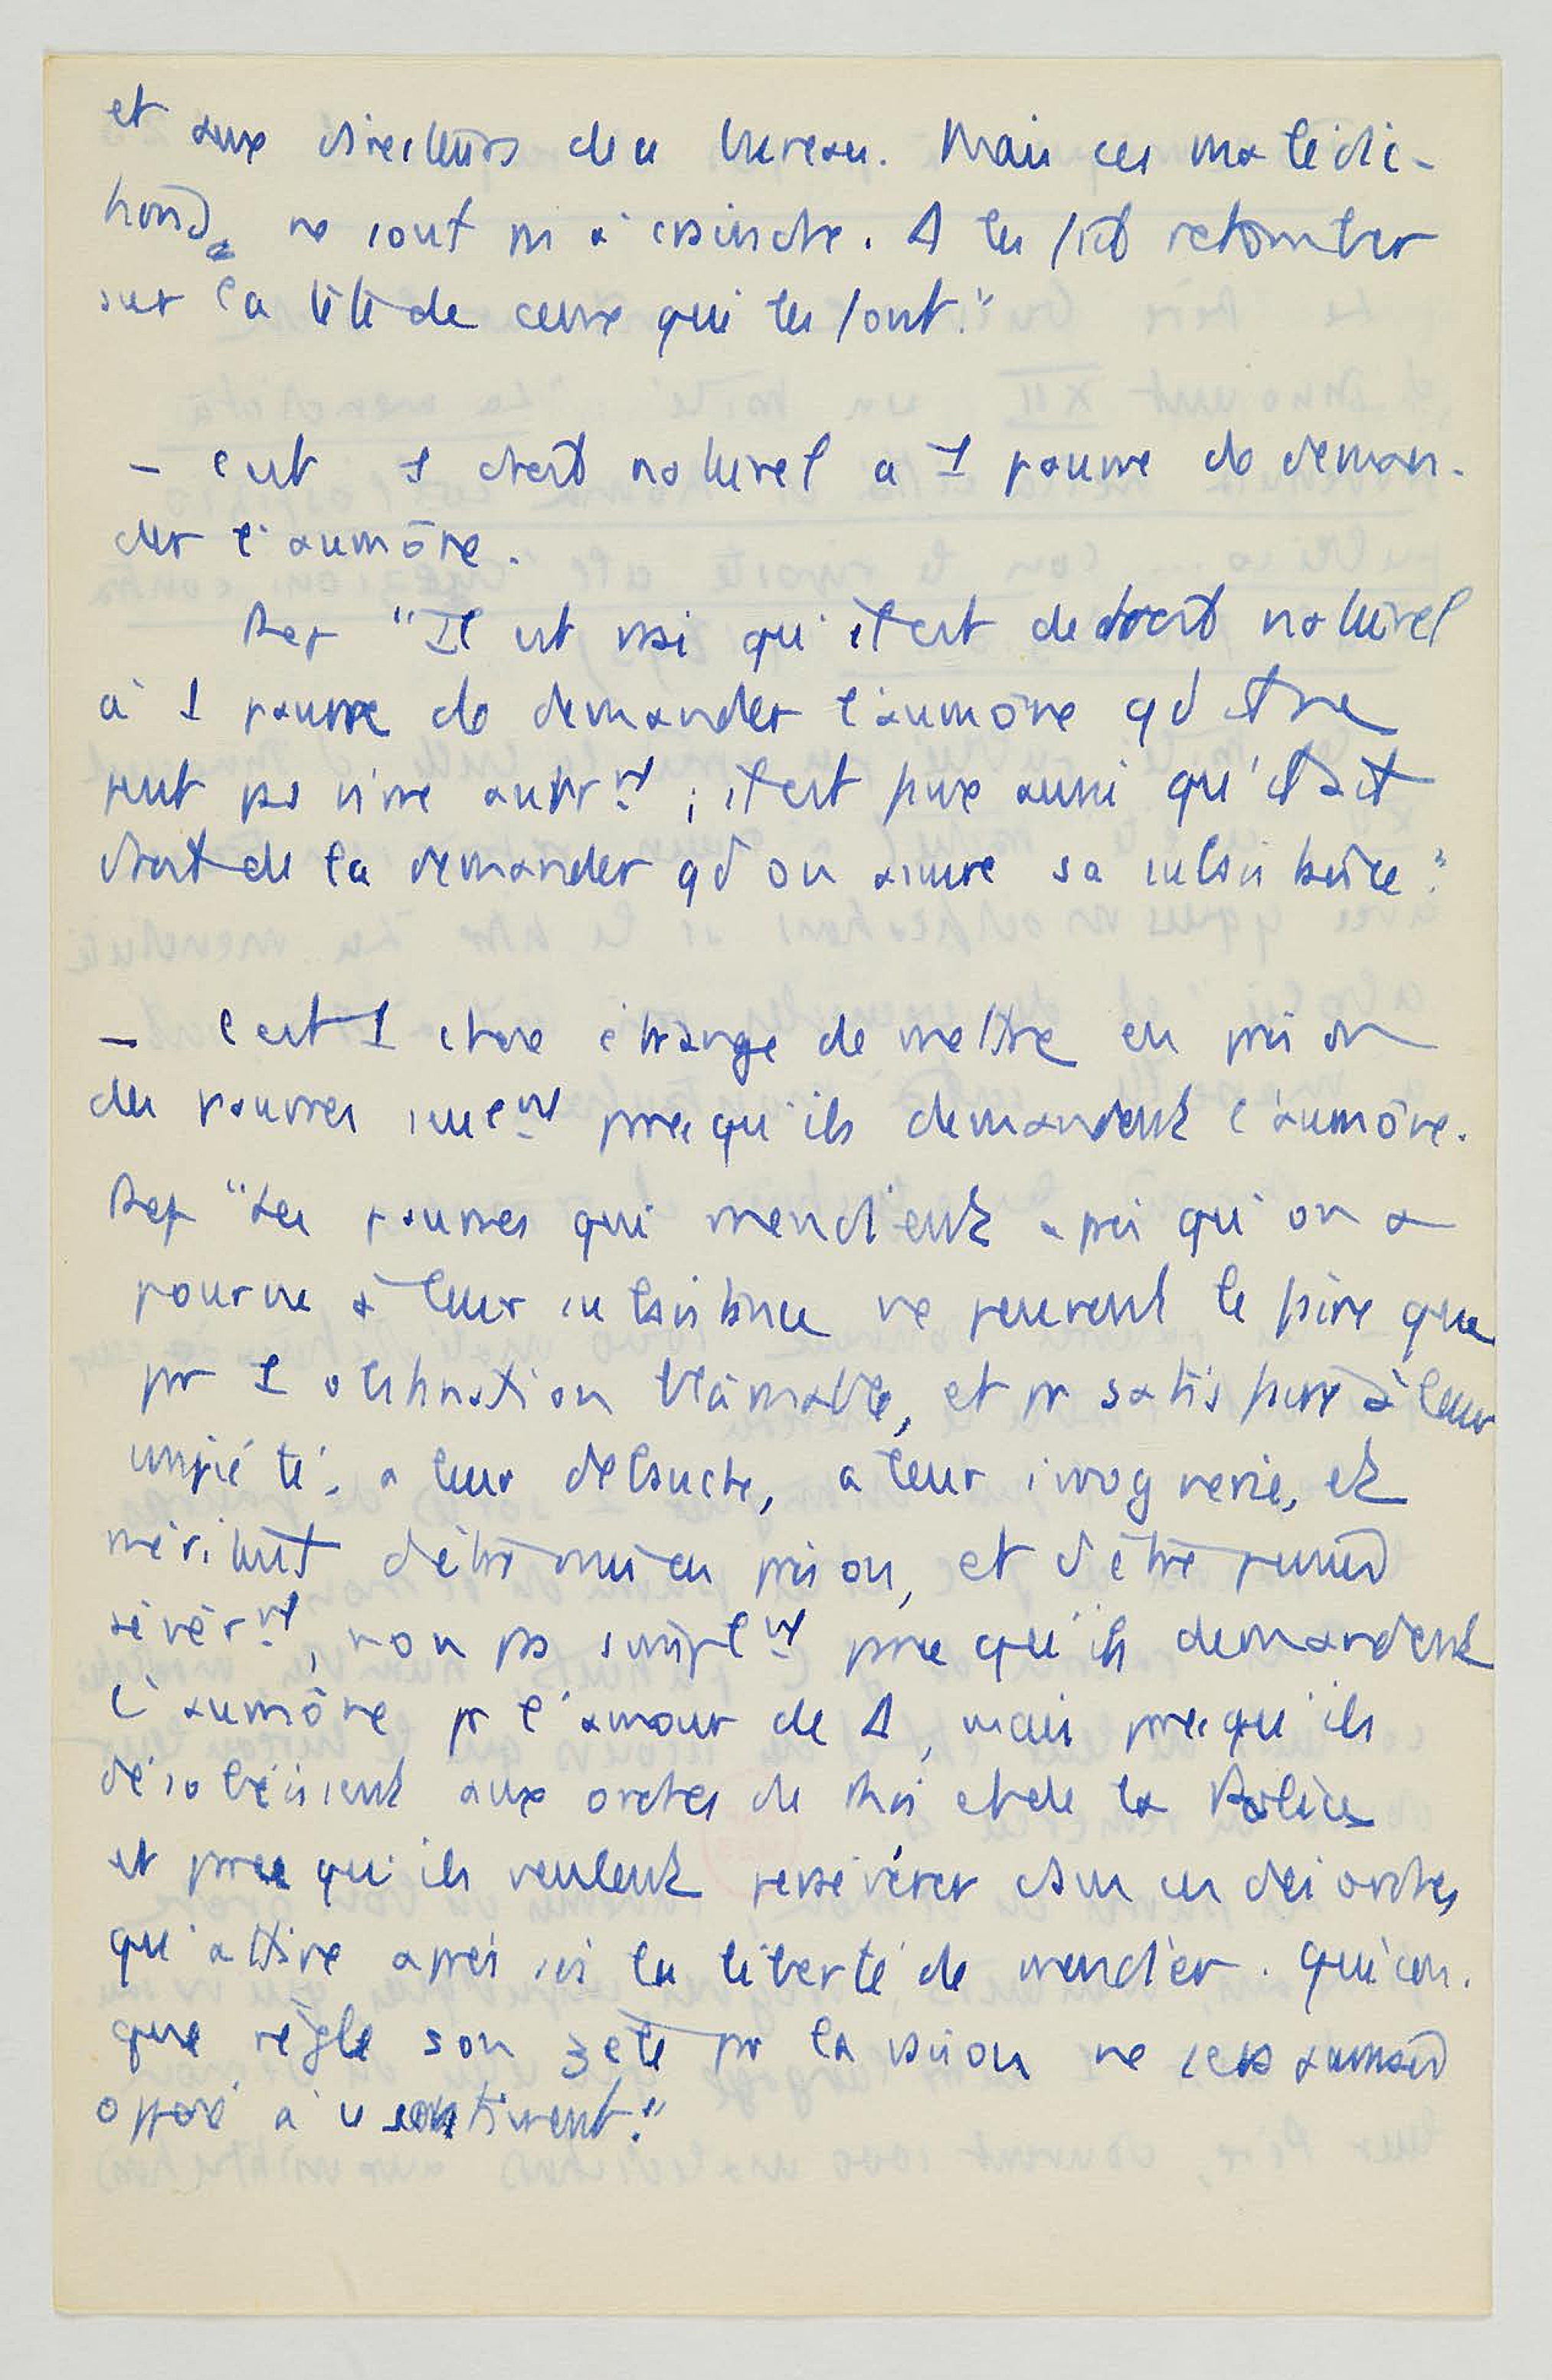 et aux directeurs du bureau. Mais ces malédic-
tions ne sont pas à craindre. Δ les fait retomber
sur la tête de ceux qui les font."
– C'est 1 droit naturel à 1 pauvre de deman-
der l'aumône.
Rep "Il est vrai qu'il est de droit naturel
à 1 pauvre de demander l'aumône qd il ne
peut pas vivre autrmt ; il est faux aussi qu'il ait
droit de la demander qd on assure sa subsistance."
– C'est 1 chose étrange de mettre en prison
des pauvres seulmt parce qu'ils demandent l'aumône.
Rep "Les pauvres qui mendient après qu'on a
pourvu à leur subsistance ne peuvent le faire que
par 1 obstination blâmable, et pr satisfaire à leur
impiété, à leur débauche, à leur ivrognerie, et
méritent d'être mis en prison, et d'être punis
sévèrmt, non pas simplmt parce qu'ils demandent
l'aumône pr l'amour de Δ, mais parce qu'ils
désobéissent aux ordres du Roi et de la Police
et parce qu'ils veulent persévérer dans les désordres
qu'attire après soi la liberté de mendier. Quicon-
que règle son zèle par la raison ne sera jamais
opposé à ce sentiment."